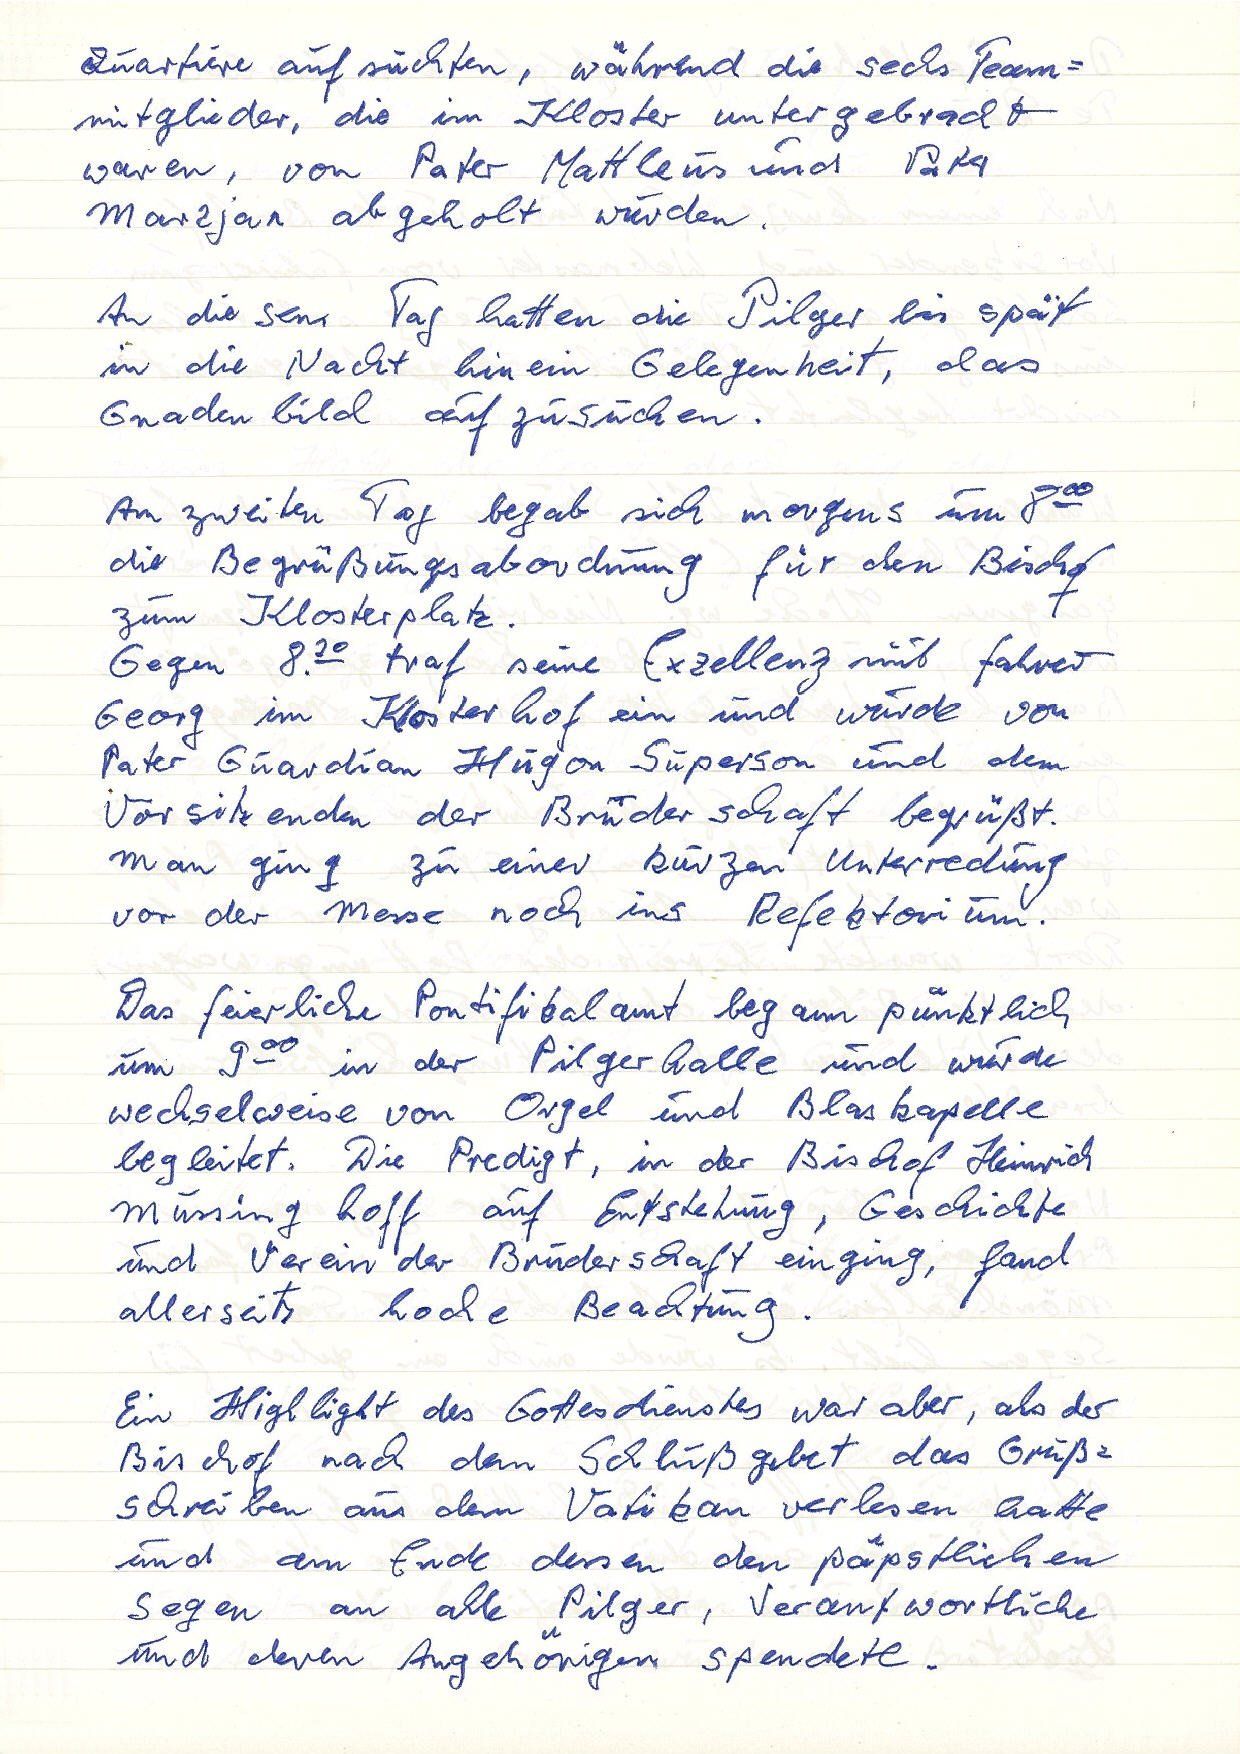 Quartiere aufsuchten, während die sechs Team=
mitglieder, die im Kloster untergebracht
waren, von Pater Mattheus und Pater
Marzjan abgeholt wurden.
An diesem Tag hatten die Pilger bis spät
in die Nacht hinein Gelegenheit, das
Gnadenbild aufzusuchen.
Am zweiten Tag begab sich morgens um 8⁰⁰
die Begrüßungsabordnung für den Bischof
zum Klosterplatz.
Gegen 8.²⁰ traf seine Exzellenz mit Fahrer
Georg im Klosterhof ein und wurde von
Pater Guardian Hugon Superson und dem
Vorsitzenden der Bruderschaft begrüßt.
Man ging zu einer kurzen Unterredung
vor der Messe noch ins Refektorium.
Das feierliche Pontifikalamt begann pünktlich
um 9⁰⁰ in der Pilgerhalle und wurde
wechselweise von Orgel und Blaskapelle
begleitet. Die Predigt, in der Bischof Heinrich
Mussinghoff auf Entstehung, Geschichte
und Verein der Bruderschaft einging, fand
allerseits hohe Beachtung.
Ein Highlight des Gottesdienstes war aber, als der
Bischof nach dem Schlußgebet das Gruß=
schreiben aus dem Vatikan verlesen hatte
und am Ende dessen den päpstlichen
Segen an alle Pilger, Verantwortliche
und deren Angehörigen spendete.